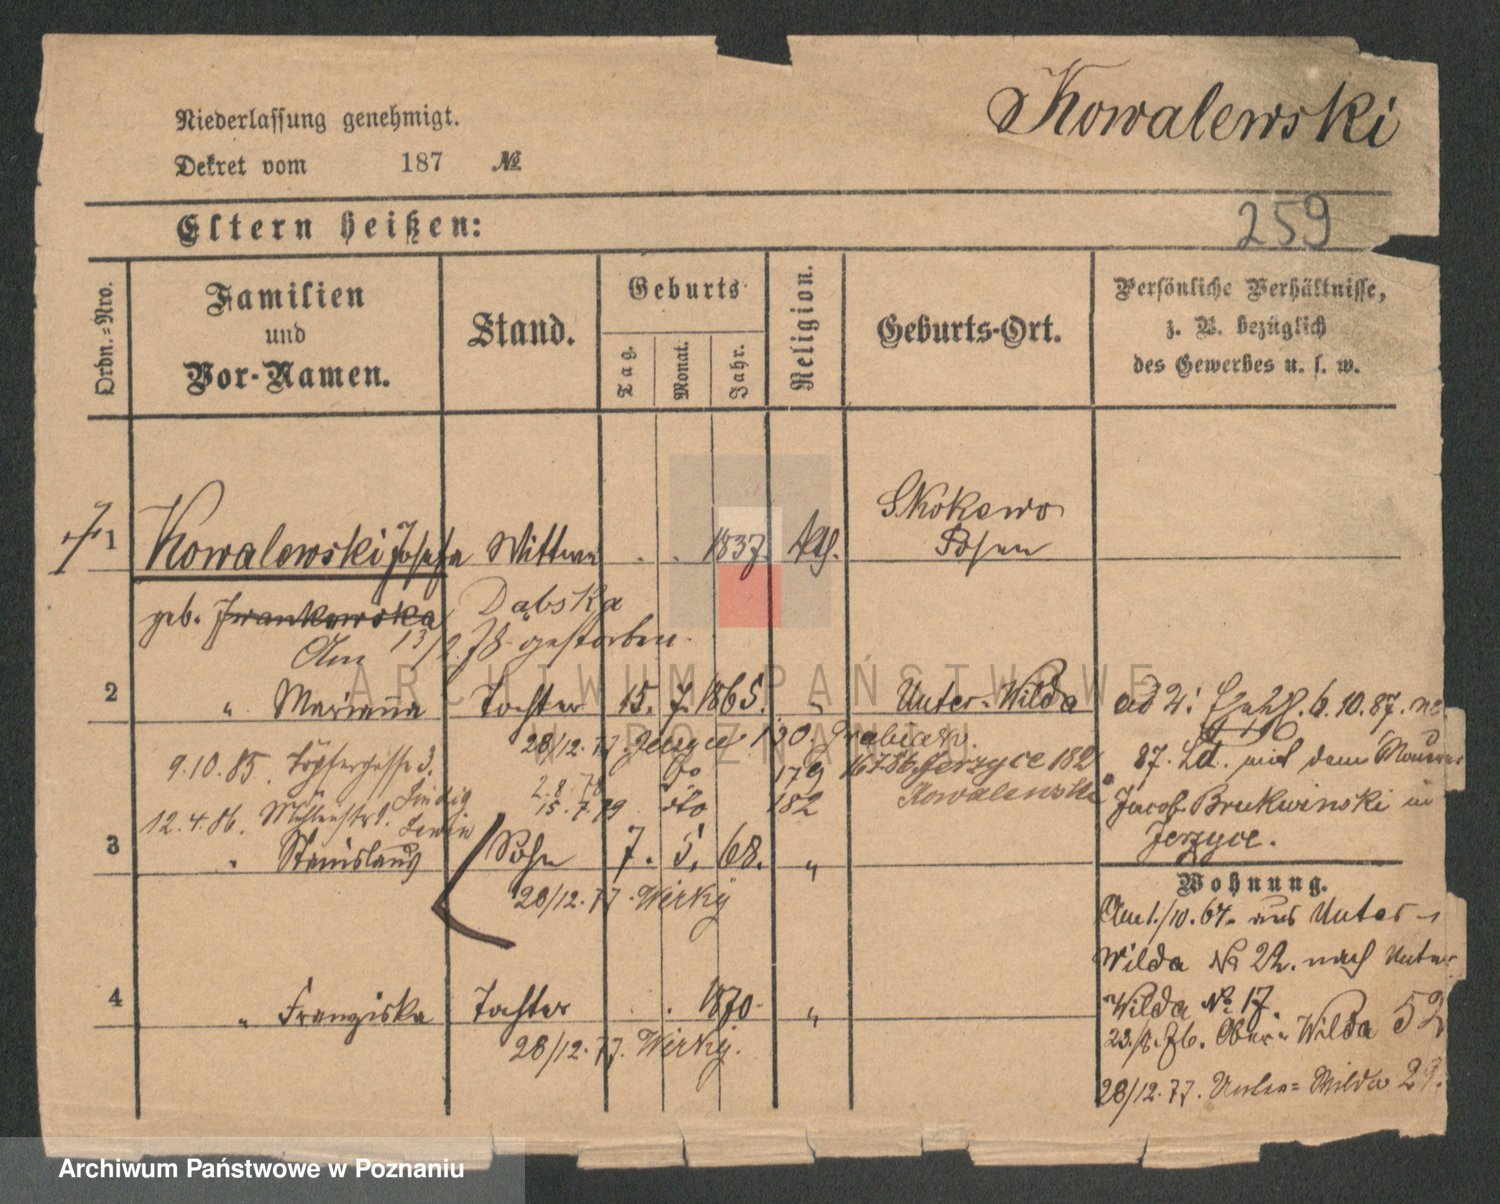 Kowalewski
Niederlassung genehmigt.
Dekret vom 187 №
259
Eltern heißen:
Ordn.=Nro.
Familien
und
Vor-Namen.
Stand.
Geburts
Tag.
Monat.
Jahr.
Religion.
Geburts-Ort.
Persönliche Verhältnisse,
z. B. bezüglich
des Gewerbes u. s. w.
1 Kowalewski Josefa Wittwe . . 1837. kth. Skokowo
Posen
geb. Frankowska Dąbska
Am 13/2. 78 gestorben.
2 " Marianna Tochter 15. 7. 1865. " Unter-Wilda
ad 2: 6.10.87.
28/12.77. 190.
87. mit dem Maurer
9.10.85. Töpfergasse 3. 2.8.78 dto 179 Jerzyce 182
12.4.86. Mühlenstr. 15.7.79 dto 182 Kowalewski
Jacob Brukwinski in
Jerzyce.
3 " Stanislaus Sohn 7. 5. 68. "
28/12.77. Wirky
Wohnung.
Am 1./10. 67. aus Unter-
Wilda № 22. nach Unter
Wilda № 17.
4 " Franziska Tochter . . 1870. "
28/12.77. Wirky.
Ober-Wilda 52
28/12.77. Unter=Wilda 29.
ARCHIWUM PAŃSTWOWE
W POZNANIU
Archiwum Państwowe w Poznaniu